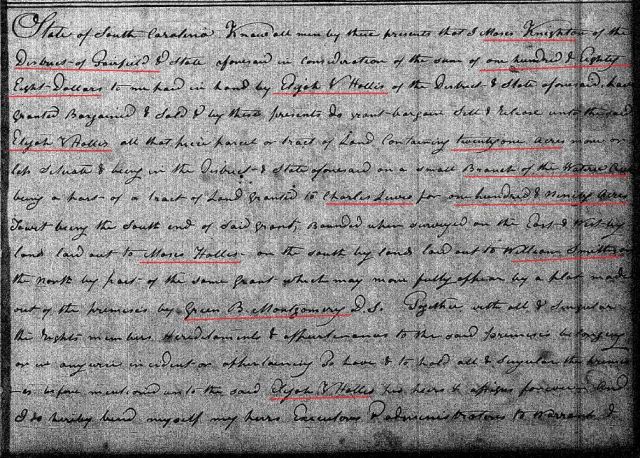 State of South Carolina Know all men by these presents that I Moses Knighton of the
District of Fairfield & State aforesaid in consideration of the sum of one hundred & Eighty
Eight Dollars to me paid in hand by Elijah Hollis of the District & State aforesaid, have
granted Bargained & Sold & by these presents do grant bargain Sell & Release unto the said
Elijah Hollis all that piece parcel or tract of Land Containing twenty one Acres more or
less Situate & being in the District & State aforesaid on a small Branch of the Wateree
being a part of a tract of Land granted to Charles Lewis for one hundred & Ninety Acres
being the South end of said grant, Bounded when surveyed on the East & West by
land laid out to Moses Hollis on the south by land laid out to William Smith
the North by part of the same Grant which may more fully appear by a plat made
out of the premises by Green B Montgomery D.S. Together with all & singular
the rights members Heredaments & appurtenances to the said premises belonging
or in any wise incident or appertaining To have & to hold all & singular the premis
es before mentioned unto the said Elijah Hollis his heirs & assigns forever And
I do hereby bind myself my heirs Executors & administrators to warrant &